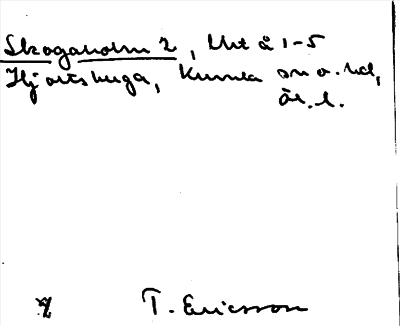 Skogaholm 2, Urt å 1-5
Hjortsberga, Kumla sn o. hd,
är. l.
T. Ericsson